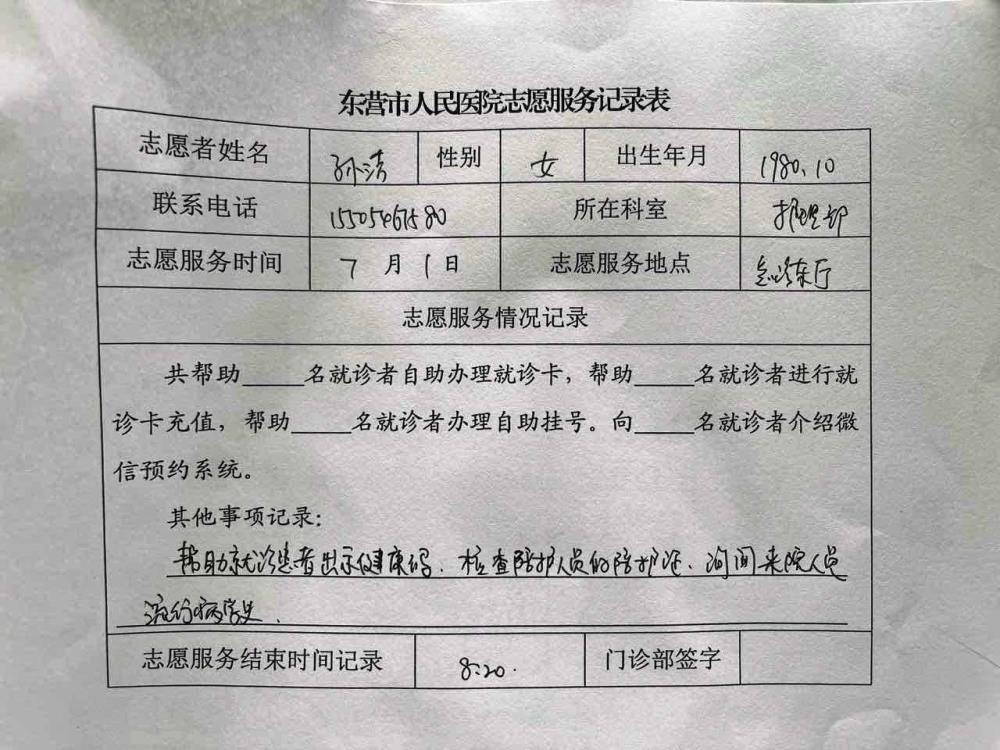 东营市人民医院志愿服务记录表
志愿者姓名 孙洁 性别 女 出生年月 1980.10
联系电话 15505461580 所在科室 护理部
志愿服务时间 7月1日 志愿服务地点 急诊东厅
志愿服务情况记录
共帮助_____名就诊者自助办理就诊卡，帮助_____名就诊者进行就
诊卡充值，帮助_____名就诊者办理自助挂号。向_____名就诊者介绍微
信预约系统。
其他事项记录：
帮助就诊患者出示健康码、核查陪护人员的陪护证、询问来院人员
流行病学史.
志愿服务结束时间记录 8:20. 门诊部签字